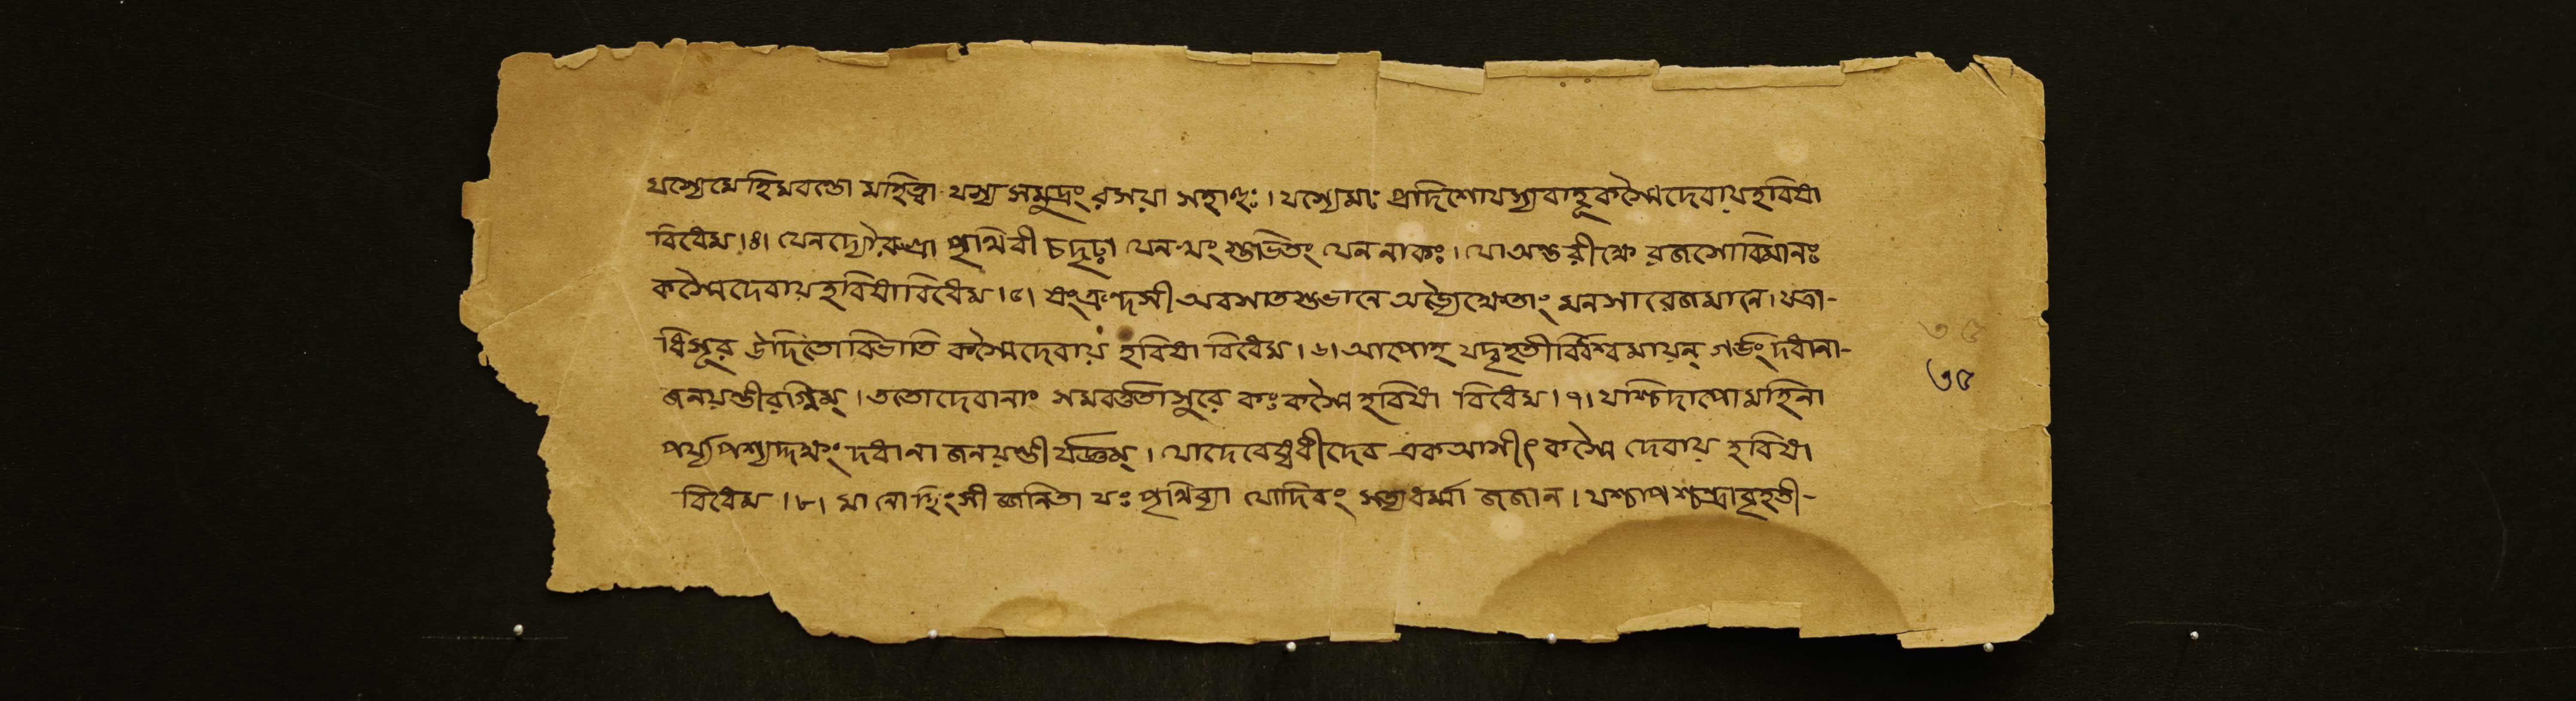 যস্যেমেহিমবন্তো মহিত্বা যস্য সমুদ্রং রসয়া সহাহুঃ। যস্যেমাঃ প্রাদিশোযস্যবাহূকস্মৈদেবায়হবিষা
বিধেম।৪। যেনদ্যৌরুগ্রা পৃথিবী চদৃঢ়া যেন স্বং স্তভিতং যেন নাকঃ। যোঅন্তরীক্ষে রজসোবিমানঃ
কস্মৈদেবায়হবিষাবিধেম।৫। যংক্রন্দসী অবসাতস্তভানে অভ্যৈক্ষেতাং মনসারেজমানে। যত্রা-
ধিসূর উদিতোবিভাতি কস্মৈদেবায় হবিষা বিধেম।৬। আপোহ যদ্বৃহতীর্বিশ্বমায়ন্ গর্ভং দধানা-
জনয়ন্তীরগ্নিম্। ততোদেবানাং সমবর্ত্ততাসুরে কঃ কস্মৈ হবিষা বিধেম।৭। যশ্চিদাপোমহিনা
পর্য্যপশ্যদ্দক্ষং দধানা জনয়ন্তীর্যজ্ঞম্। যোদেবেষ্বধীদেব একআসীৎ কস্মৈ দেবায় হবিষা
বিধেম।৮। মা নোহিংসী জ্জনিতা যঃ পৃথিব্যা যোদিবং সত্যধর্ম্মা জজান। যশ্চাপশ্চন্দ্রাবৃহতী-
৩৫
৩৫